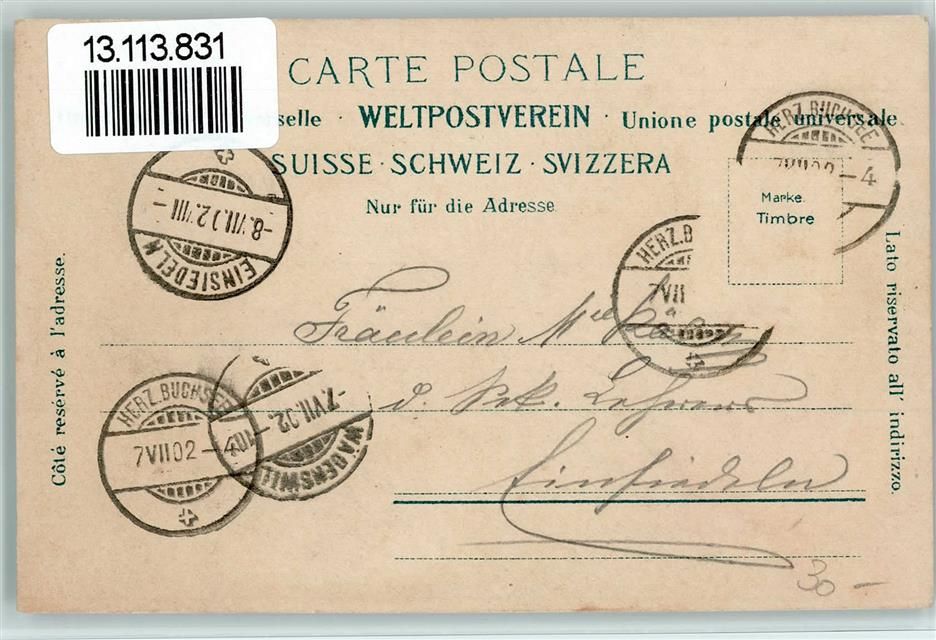 13.113.831
CARTE POSTALE
selle · WELTPOSTVEREIN · Unione postale universale
SUISSE · SCHWEIZ · SVIZZERA
Nur für die Adresse
Marke
Timbre
Côté reservé à l'adresse.
Lato riservato all' indirizzo.
HERZ.BUCHSEE
7VII02 -4
EINSIEDELN
-8.VII.02.VIII-
HERZ.B
7VII
HERZ.BUCHSEE
7VII02 -4
WÄDENSWIL
-7.VII.02.-10
Fräulein
d. Sek. Lehrers
Einsiedeln
30 -